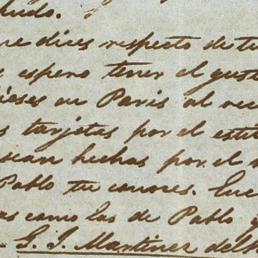 ludo.
ue dices respecto de tu
espero tener el gust
ieses en Paris al rec
s tarjetas por el estil
sean hechas por el m
Pablo tu conoces. Luc
as como las de Pablo y
G. J. Martinez del